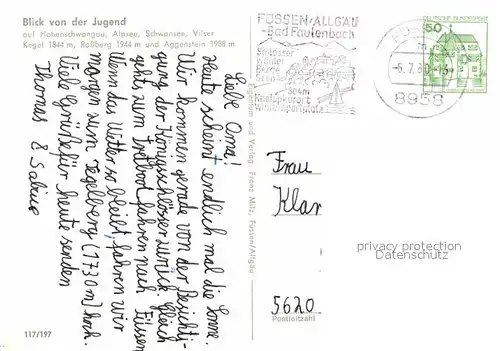 Blick von der Jugend
auf Hohenschwangau, Alpsee, Schwansee, Vilser
Kegel 1844 m, Roßberg 1944 m und Aggenstein 1988 m
Liebe Oma!
Heute scheint endlich mal die Sonne.
Wir kommen gerade von der Besichti-
gung der Königsschlösser zurück. Gleich
gehts zum Tretbootfahren nach Füssen.
Wenn das Wetter so bleibt, fahren wir
morgen zum Tegelberg (1730 m) hoch.
Viele Grüße für heute senden
Thomas & Sabine
117/197
und Verlag: Franz Milz, Füssen/Allgäu
FÜSSEN/ALLGÄU
-Bad Faulenbach
Schlösser
Wälder
Berge
804m
Kneippkurort
Wintersportplatz
-6.7.80-15
8958
DEUTSCHE BUNDESPOST
50
Frau
Klar
privacy protection
Datenschutz
5620
Postleitzahl